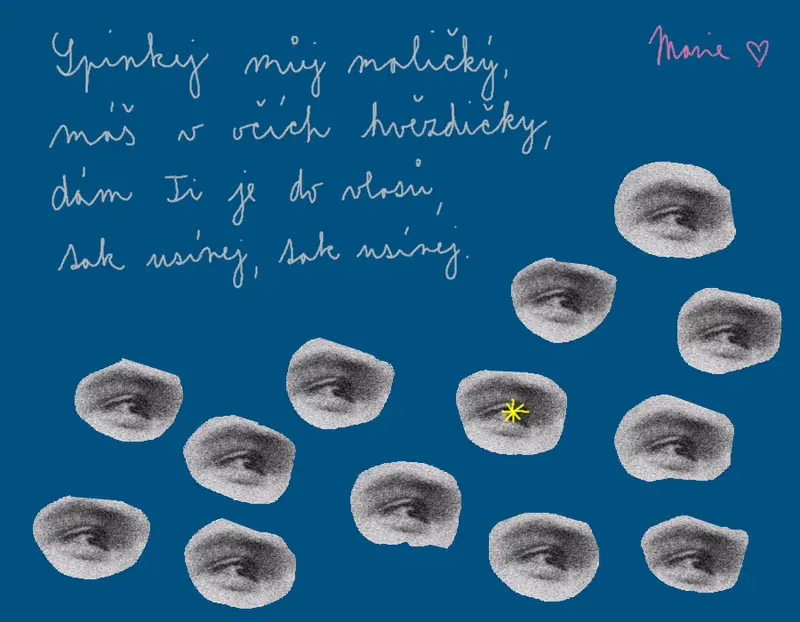 Spinkej můj maličký,
máš v očích hvězdičky,
dám Ti je do vlasů,
tak usínej, tak usínej.
Marie ♡